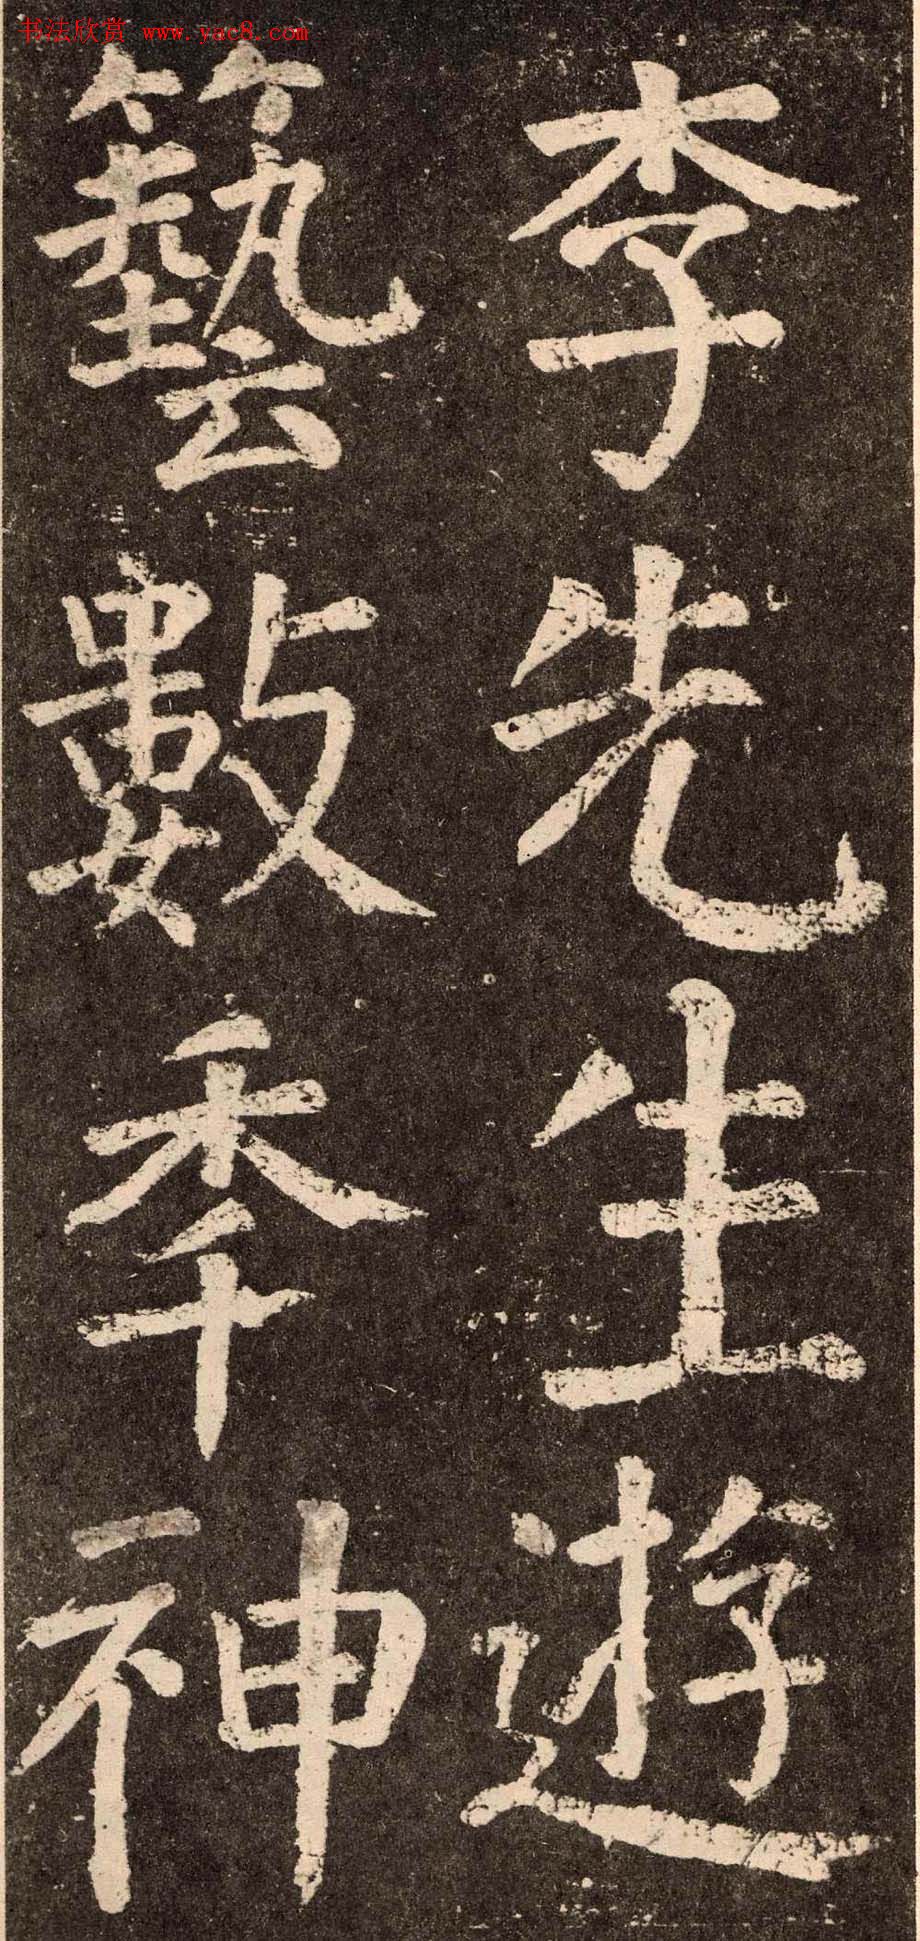 书法欣赏 www.yac8.com
李先生遊
藝數秊神